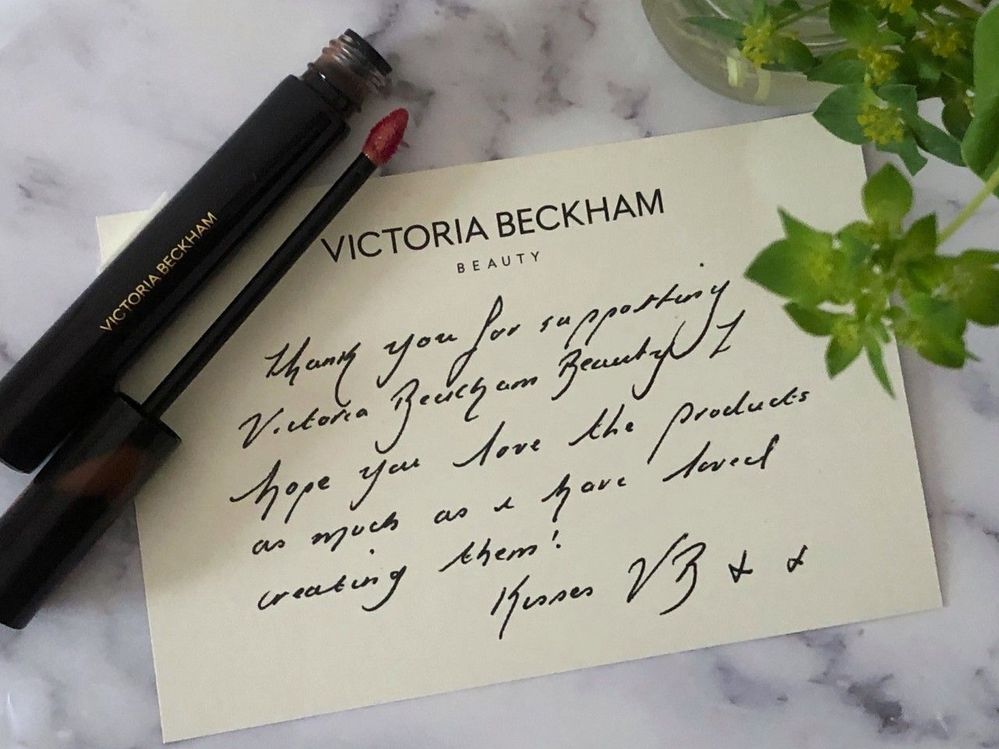 VICTORIA BECKHAM
VICTORIA BECKHAM
BEAUTY
Thank you for supporting
Victoria Beckham Beauty I
hope you love the products
as much as i have loved
creating them!
Kisses VB x x